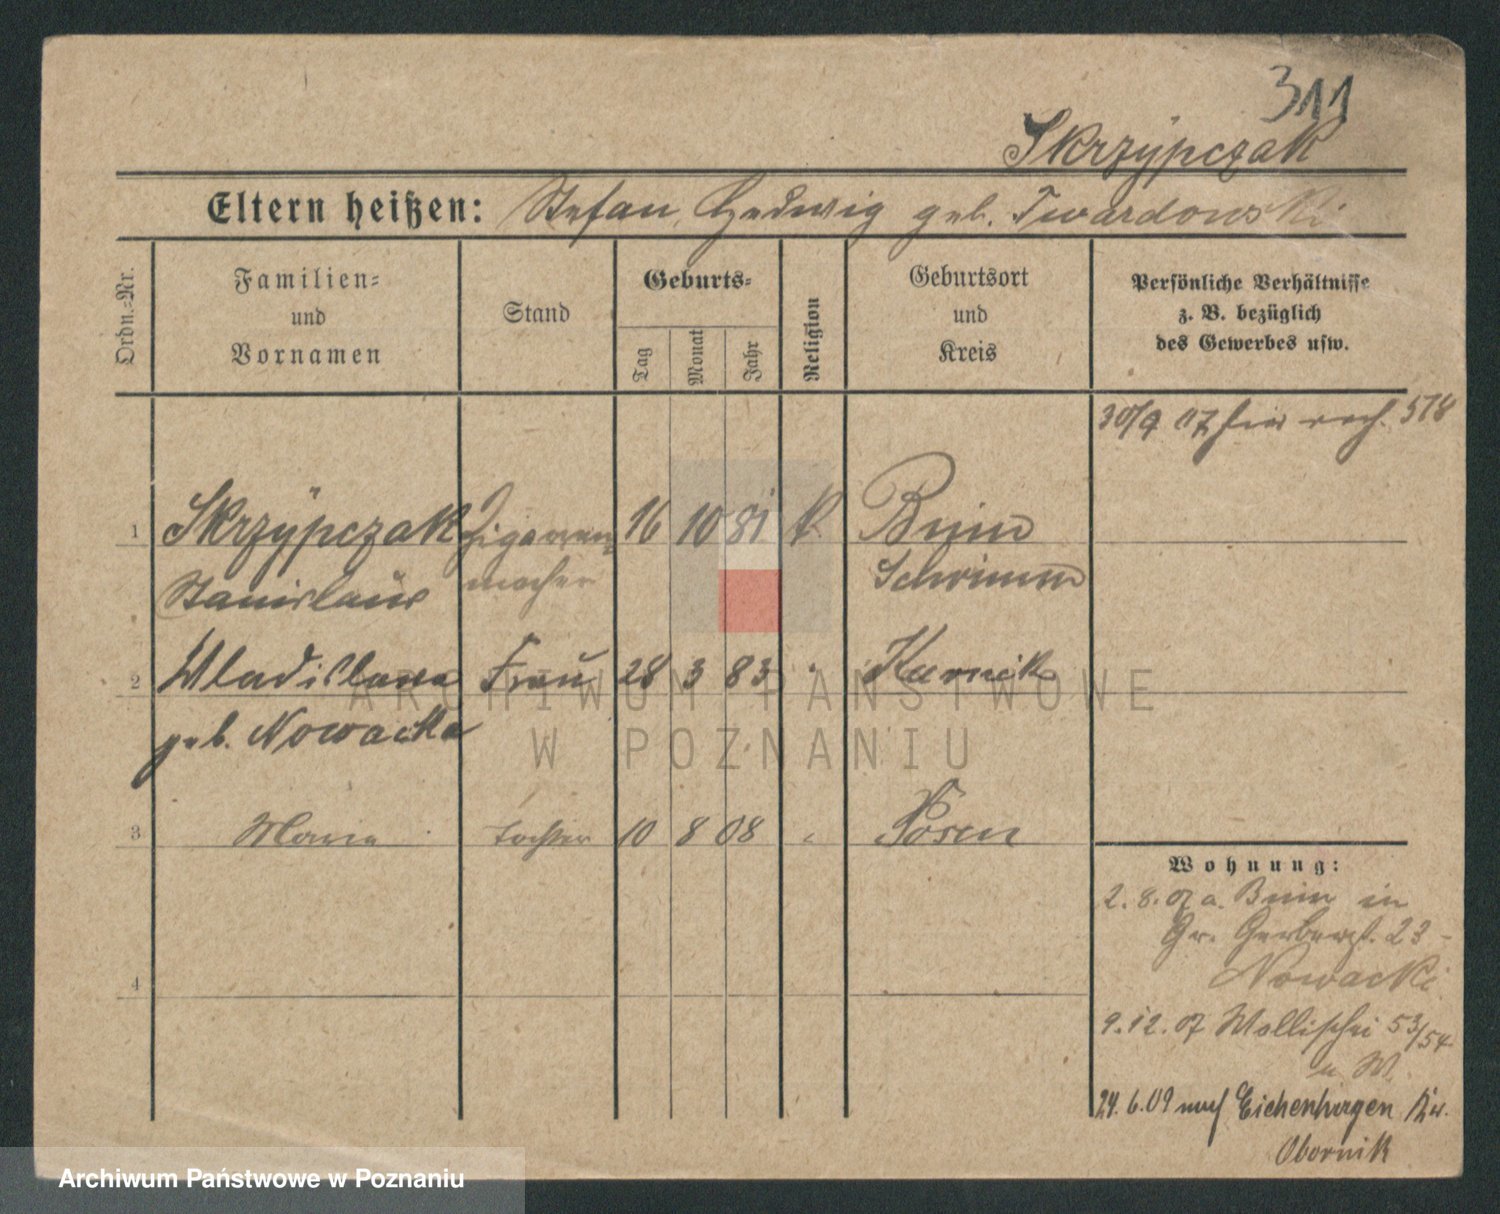 311
Skrzÿpczak
Eltern heißen: Stefan, Hedwig geb. Twardowski
Ordn.=Nr.
Familien=
und
Vornamen
Stand
Geburts=
Tag
Monat
Jahr
Religion
Geburtsort
und
Kreis
Persönliche Verhältnisse
z. B. bezüglich
des Gewerbes usw.
30/9 07 578
1 Skrzÿpczak Zigarren 16 10 81 k Bnin
Stanislaus macher Schrimm
2 Wladislawa Frau 28 3 83 " Kurnik
geb. Nowacka
3 Maria Tochter 10 8 08 " Posen
4
Wohnung:
2. 8. 07 a. Bnin in
Gr. Gerberst. 23 -
Nowacki
9. 12. 07 Wallischei 53/54
u W.
24. 6. 09 nach Eichenhagen Kr.
Obornik
ARCHIWUM PAŃSTWOWE
W POZNANIU
Archiwum Państwowe w Poznaniu